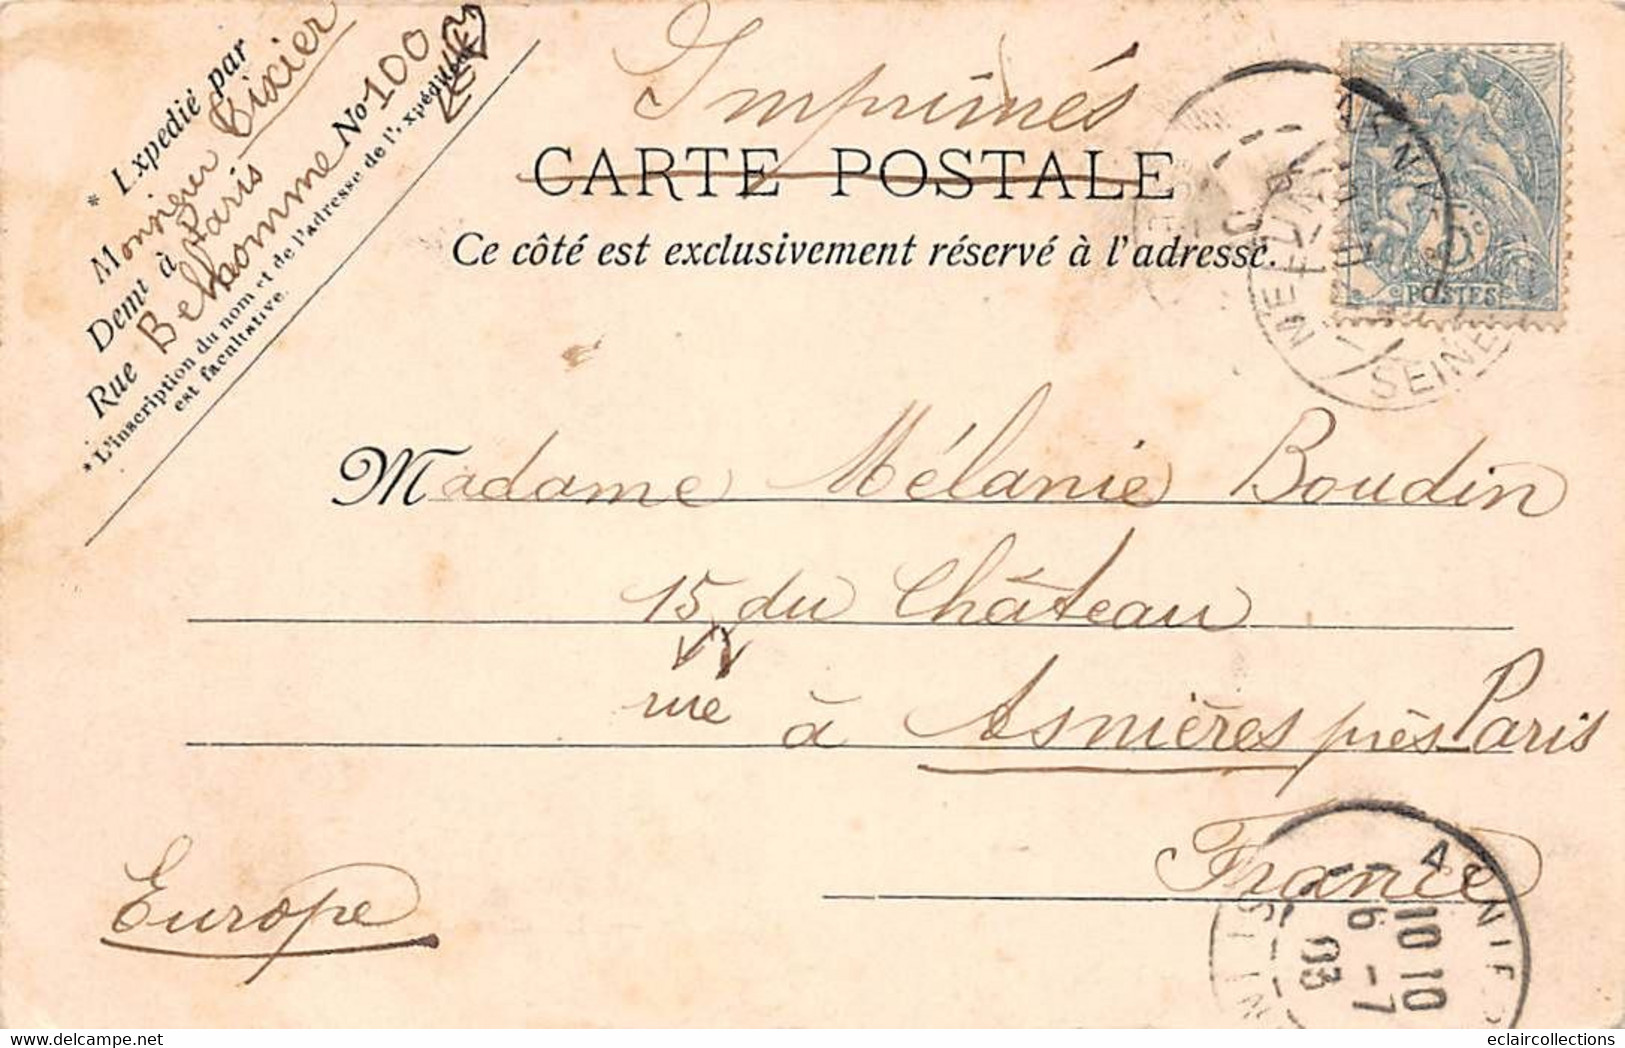 * Expedié par
Monsieur Tixier
Demt à Paris
Rue Belhomme No 100
* L'inscription du nom et de l'adresse de l'expéditeur
est facultative.
Imprimés
CARTE POSTALE
Ce côté est exclusivement réservé à l'adresse.
POSTES
SEINE
Madame Mélanie Boudin
15 du Château
rue à Asnières près Paris
France
Europe
ASNIERES
10 10
6 -7
03
eclaircollections